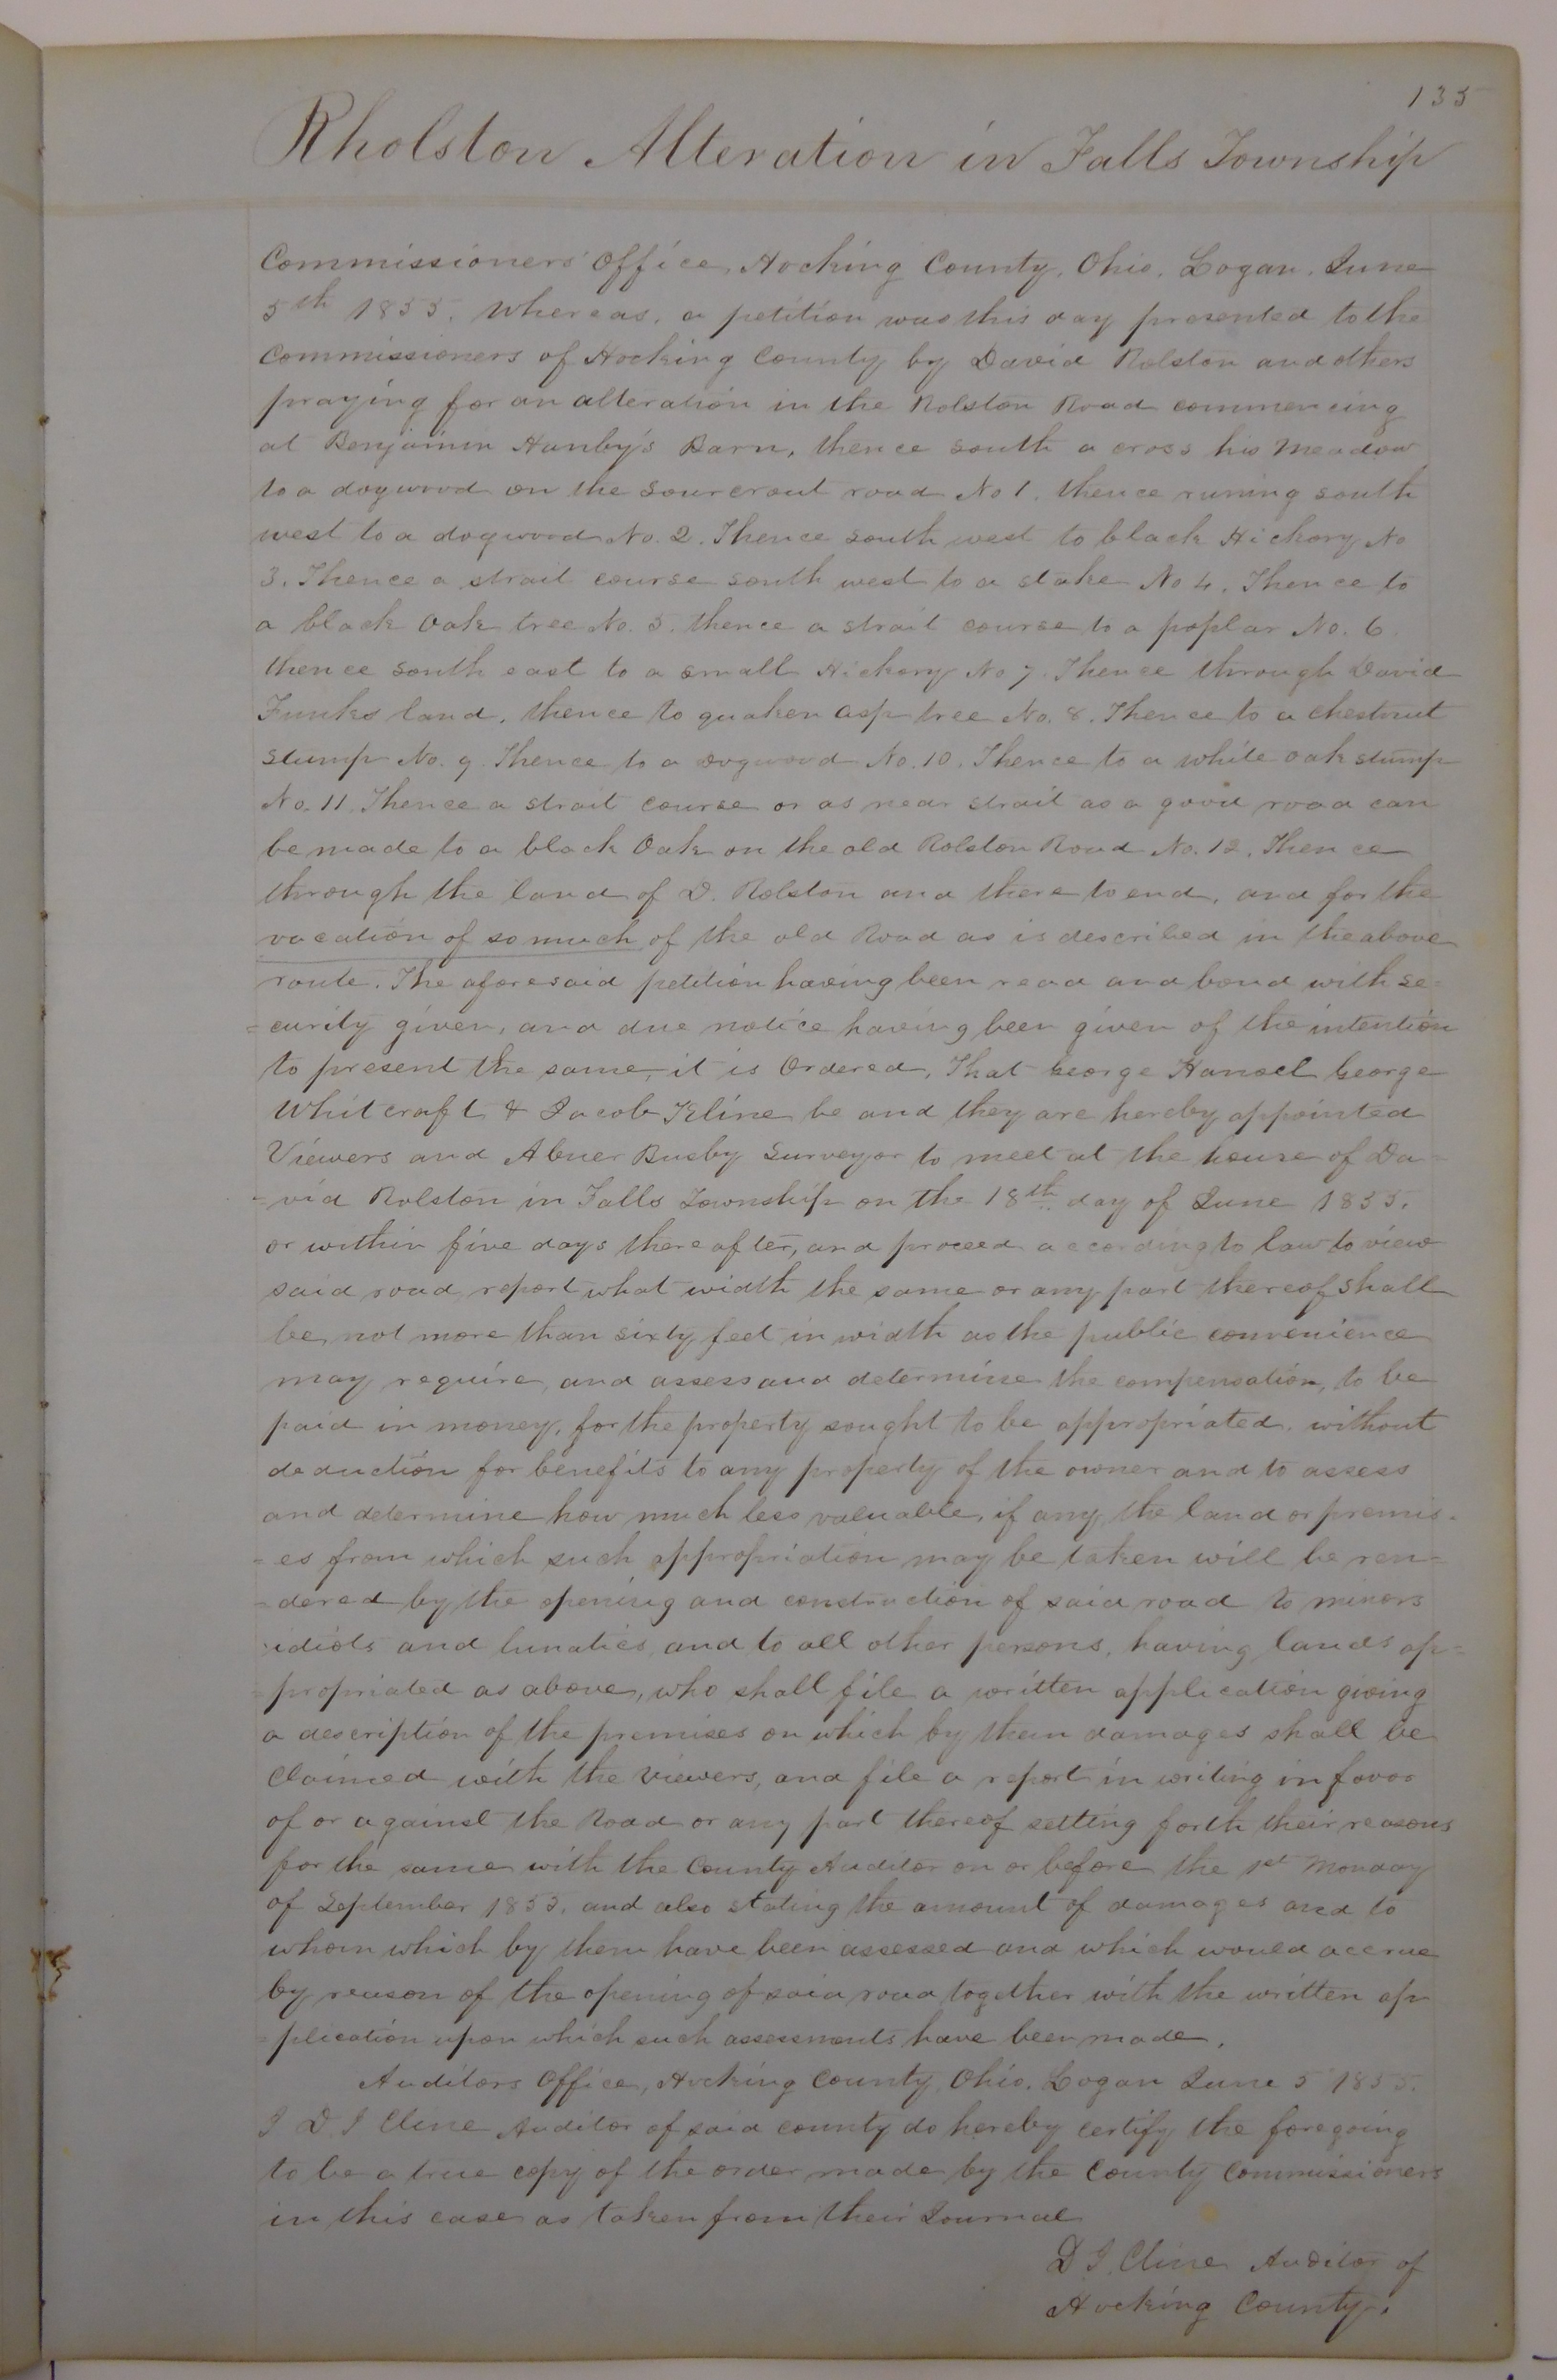 135
Rholston Alteration in Falls Township
Commissioners Office, Hocking County, Ohio. Logan. June
5th 1855. Whereas, a petition was this day presented to the
Commissioners of Hocking County by David Rolston and others
praying for an alteration in the Rolston Road commencing
at Benjamin Hanby's Barn, thence south a cross his meadow
to a dogwood on the Sourcrout road No 1. thence runing south
west to a dogwood No. 2. Thence south west to black Hickory No
3. Thence a strait course south west to a stake No 4. Thence to
a black Oak tree No. 5. thence a strait course to a poplar No. 6.
thence south east to a small Hickory No 7. Thence through David
Funks land, thence to quaken asp tree No. 8. Thence to a chestnut
stump No. 9. Thence to a dogwood No. 10. Thence to a white oak stump
No. 11. Thence a strait course or as near strait as a good road can
be made to a black Oak on the old Rolston Road No. 12. Thence
through the land of D. Rolston and there to end, and for the
vacation of so much of the old Road as is described in the above
route. The aforesaid petition having been read and bond with se=
=curity given, and due notice having been given of the intention
to present the same, it is Ordered, That George Hansel George
Whitcraft & Jacob Kline be and they are hereby appointed
Viewers and Abner Busby Surveyor to meet at the house of Da=
=vid Rolston in Falls Township on the 18th day of June 1855.
or within five days thereafter, and proceed according to law to view
said road, report what width the same or any part thereof shall
be, not more than sixty feet in width as the public convenience
may require, and assess and determine the compensation, to be
paid in money, for the property sought to be appropriated, without
deduction for benefits to any property of the owner and to assess
and determine how much less valuable, if any, the land or premis=
=es from which such appropriation may be taken will be ren=
=dered by the opening and construction of said road to minors
idiots and lunatics, and to all other persons, having lands ap=
=propriated as above, who shall file a written application giving
a description of the premises on which by them damages shall be
Claimed with the Viewers, and file a report in writing in favor
of or against the Road or any part thereof setting forth their reasons
for the same with the County Auditor on or before the 1st Monday
of September 1855, and also stating the amount of damages and to
whom which by them have been assessed and which would accrue
by reason of the opening of said road together with the written ap
=plication upon which such assessments have been made.
Auditors Office, Hocking County, Ohio. Logan June 5 1855.
I D. I Cline Auditor of said county do hereby certify the foregoing
to be a true copy of the order made by the County Commissioners
in this case as taken from their Journal
D I. Cline Auditor of
Hocking County.